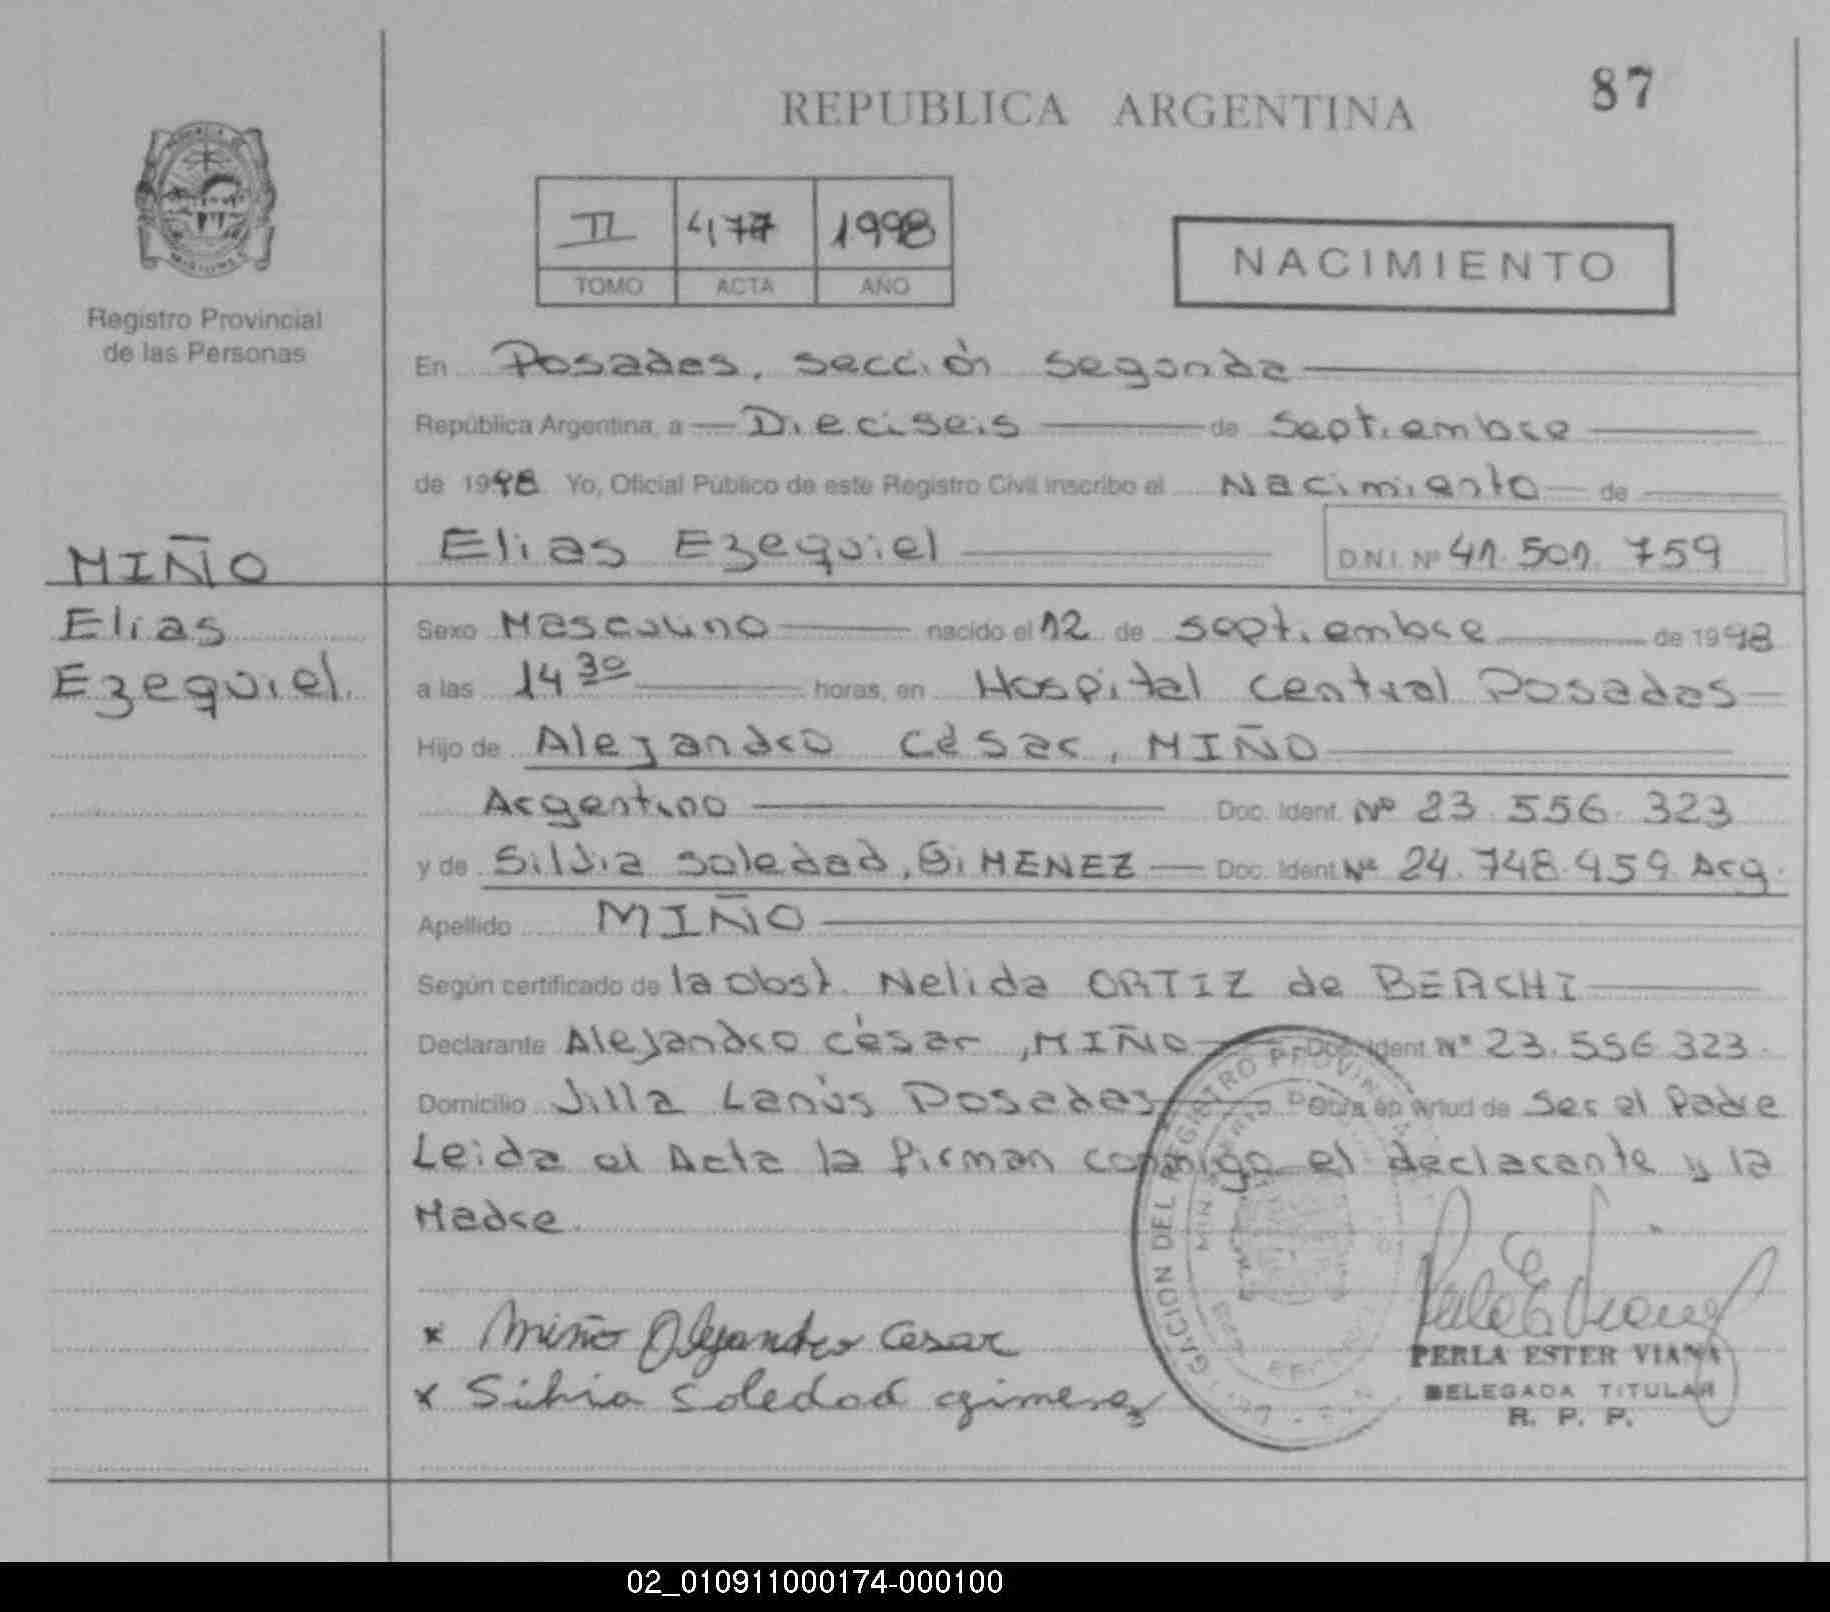 87
REPUBLICA ARGENTINA
II 477 1998
TOMO ACTA AÑO
NACIMIENTO
MISIONES
Registro Provincial
de las Personas
En Posadas, sección segunda
República Argentina, a Dieciseis de Septiembre
de 1998 Yo, Oficial Público de este Registro Civil inscribo el Nacimiento de
Elias Ezequiel D.N.I. Nº 41.501.759
MIÑO
Elias
Ezequiel.
Sexo Masculino nacido el 12 de septiembre de 1998
a las 14 30 horas, en Hospital central Posadas
Hijo de Alejandro César, MIÑO
Argentino Doc. Ident. Nº 23.556.323
y de Silvia Soledad, GiMENEZ Doc. Ident. Nº 24.748.959 Arg.
Apellido MIÑO
Según certificado de la Obst. Nelida ORTIZ de BERCHI
Declarante Alejandro césar, MIÑO Doc. Ident Nº 23.556.323.
Domicilio Villa Lanús Posadas Obra en virtud de Ser el Padre
Leida el Acta la firman conmigo el declarante y la
Madre.
x Miño Alejandro Cesar
x Silvia Soledad Gimenez
PERLA ESTER VIANA
DELEGADA TITULAR
R. P. P.
02_010911000174-000100